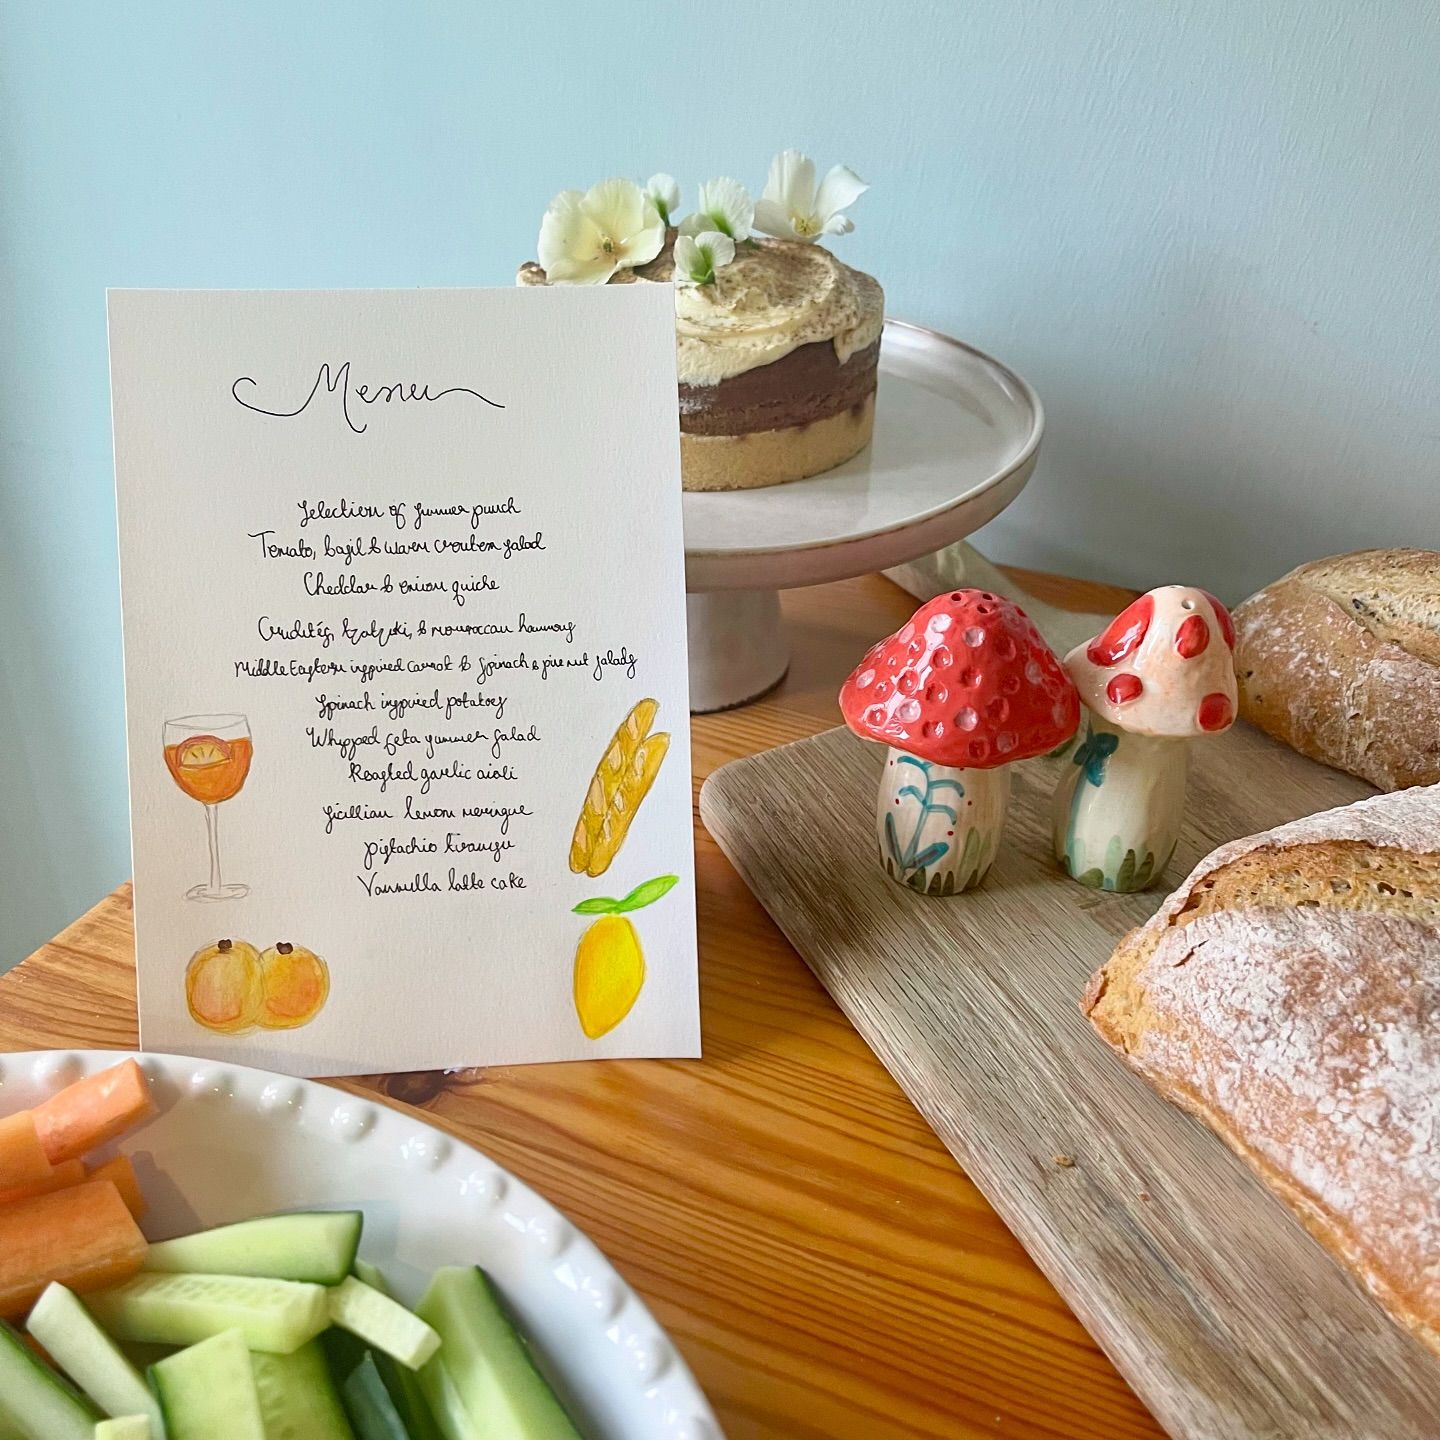 Menu
Selection of summer punch
Tomato, basil & warm crouton salad
Cheddar & onion quiche
Crudités, tzatziki, & moroccan hummous
Middle Eastern inspired carrot & spinach & pine nut salads
Spinach inspired potatoes
Whipped feta summer salad
Roasted garlic aioli
Sicillian lemon meringue
pistachio tiramisu
Vannilla latte cake